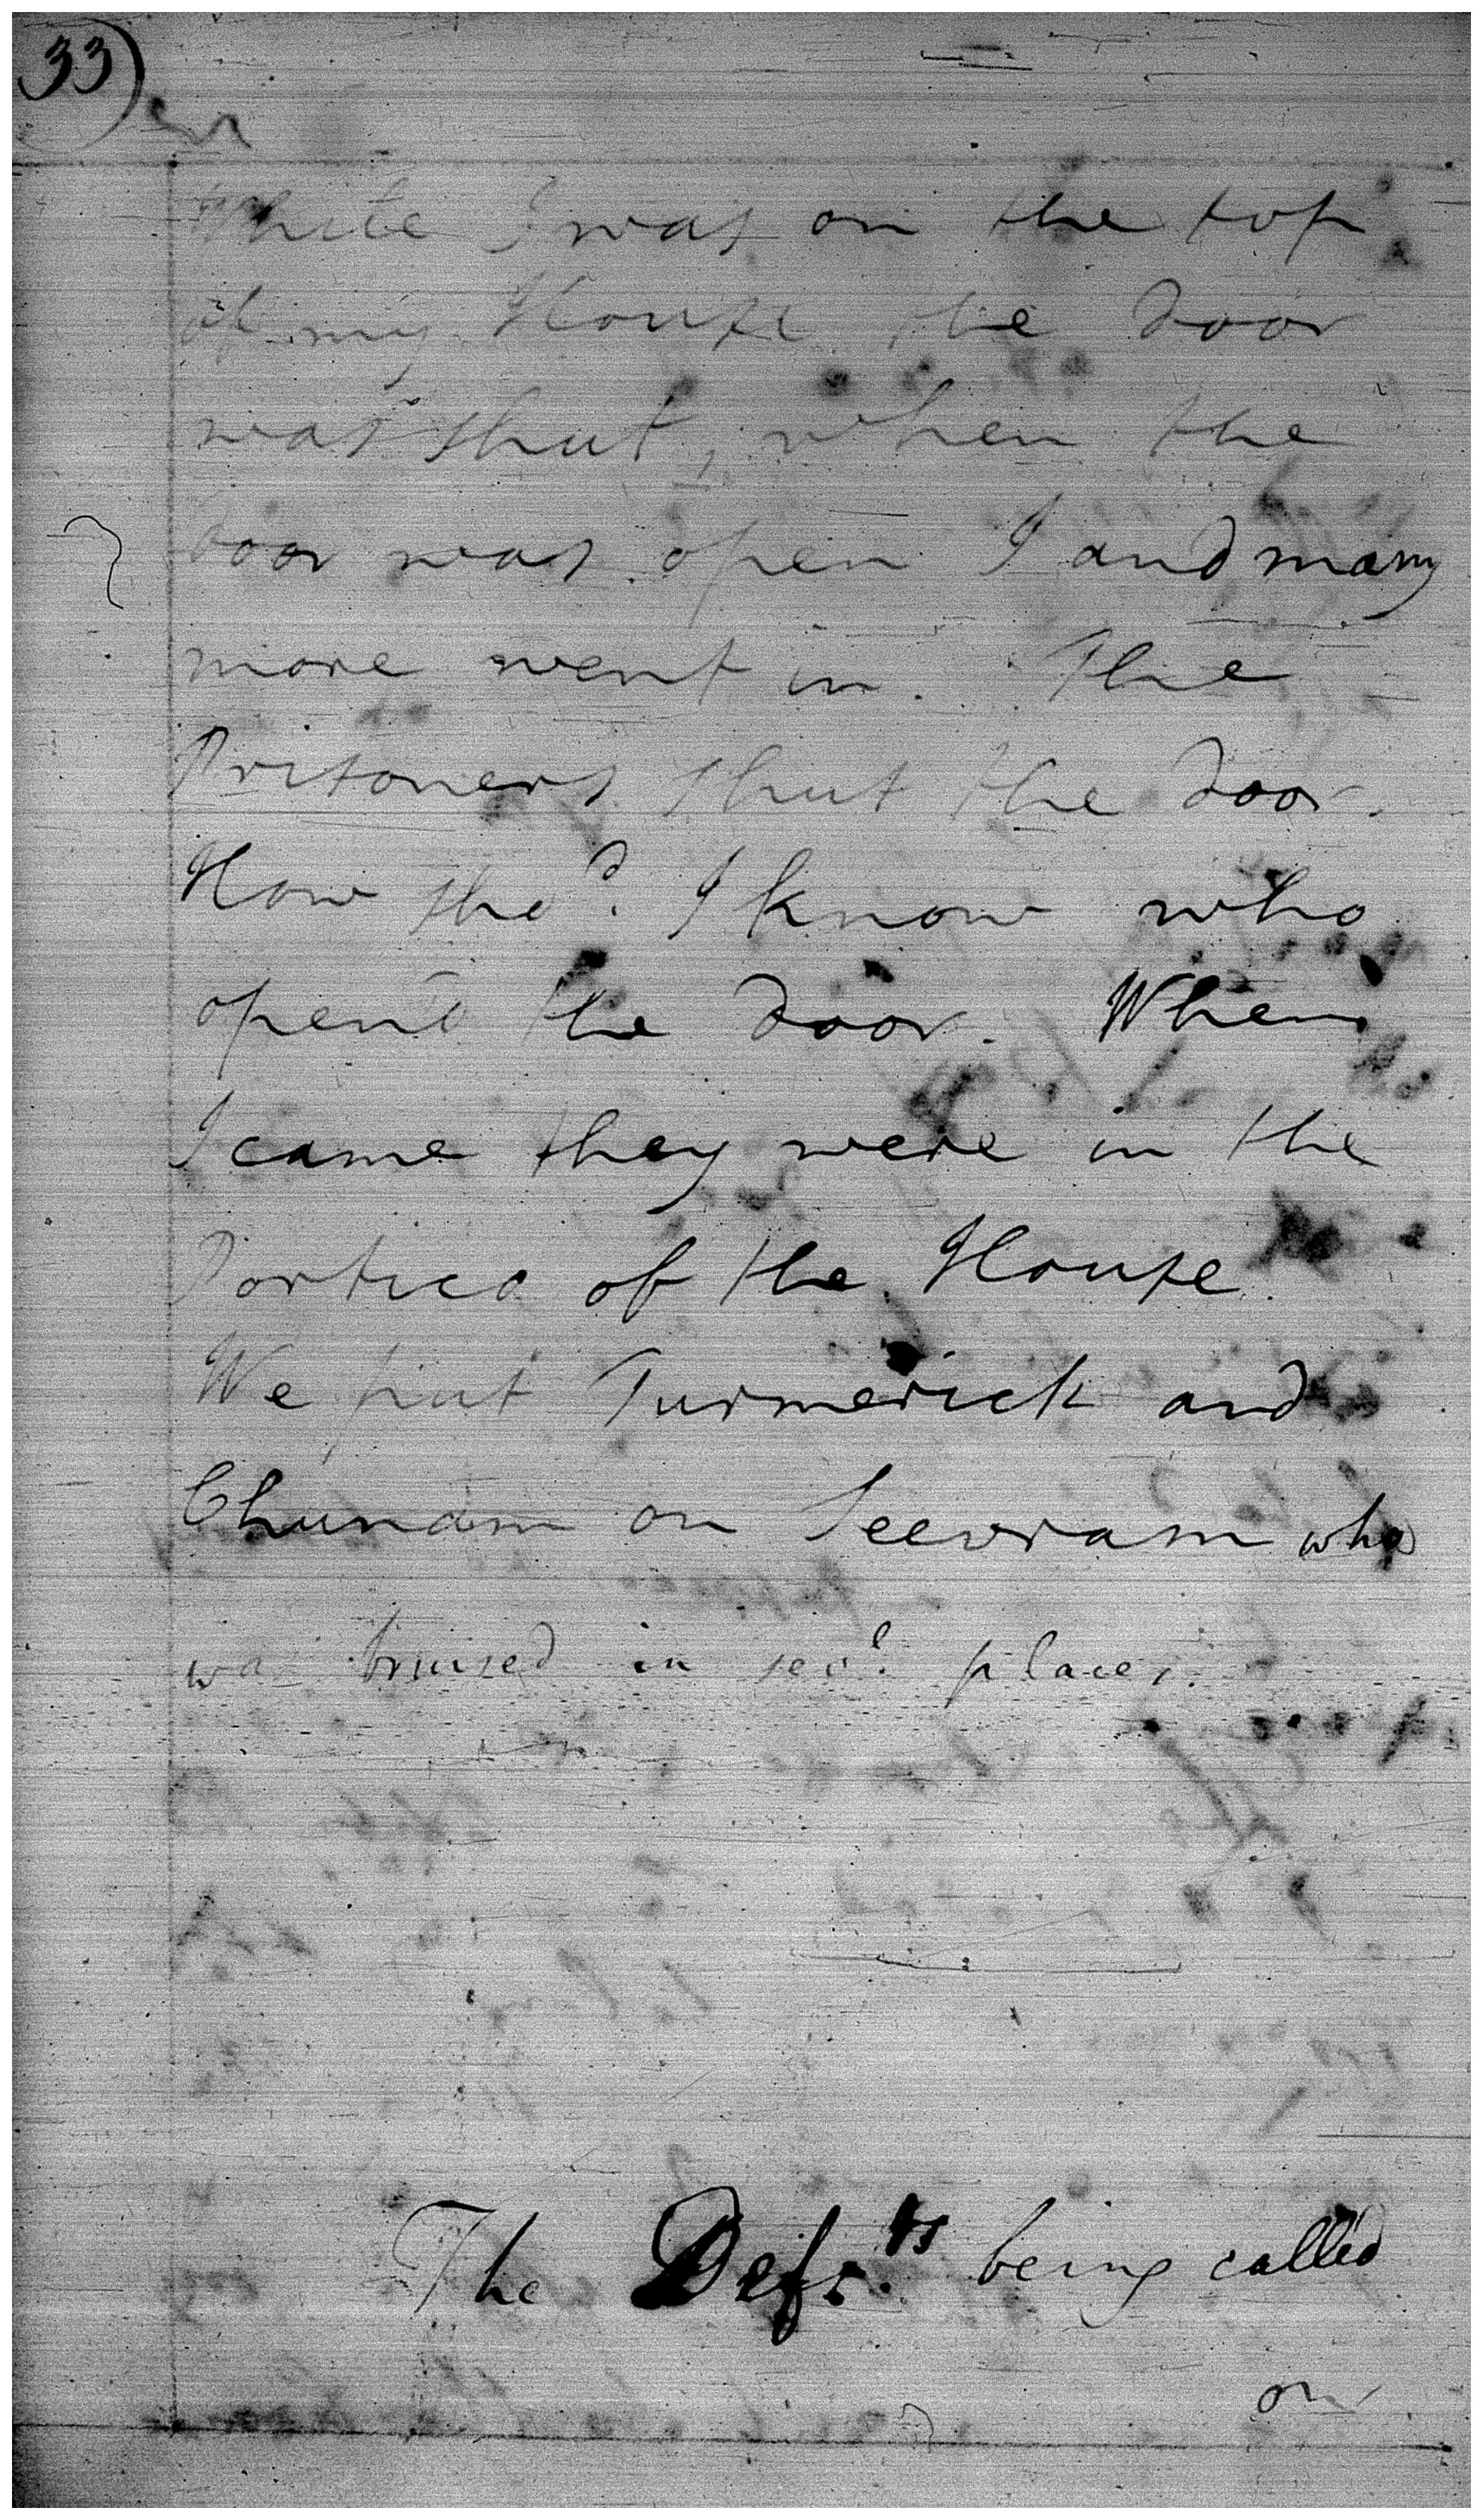 33)
While I was on the top
of my House the door
was shut, when the
door was open I and many
more went in. The
Prisoners shut the door.
How sho.d I know who
open'd the door. When
I came they were in the
Portico of the House.
We put Turmerick and
Chunam on Seevram who
was bruised in sev.l places.
The Defs.ts being called
on